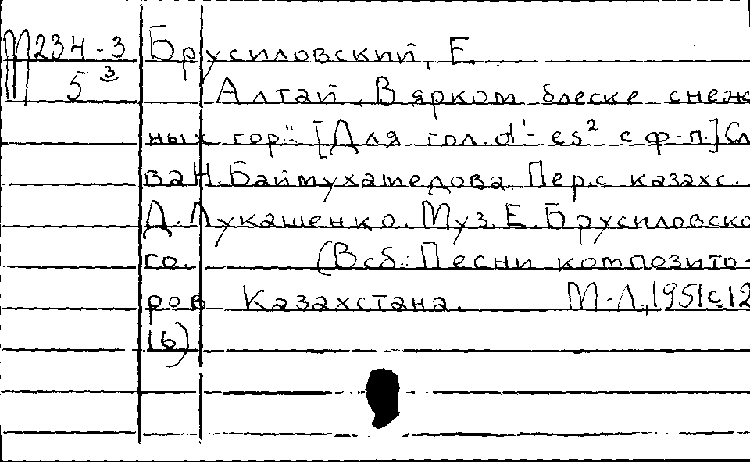 М234-3 Брусиловский, Е.
5³ Алтай „В ярком блеске снеж
ных гор". [Для гол. d'- es² с ф-п.] Сл
ва Н. Баймухамедова. Пер. с казахс.
Д. Лукашенко. Муз. Е. Брусиловско
го. (В сб.: Песни композито-
ров Казахстана. М.-Л., 1951 с 12
16)